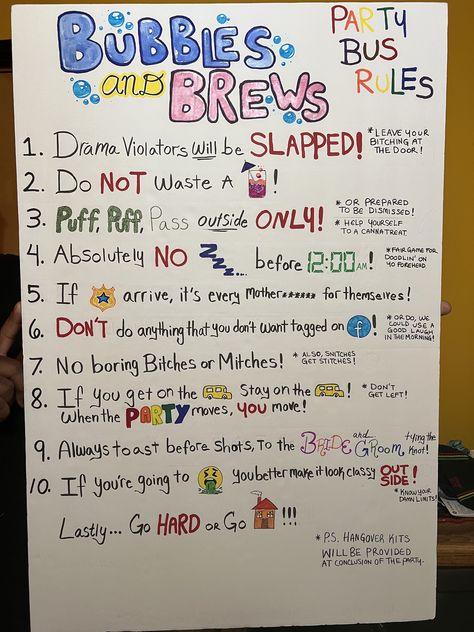 BUBBLES
and BREWS
PARTY
BUS
RULES
1. Drama Violators will be SLAPPED! *LEAVE YOUR
BITCHING AT
THE DOOR!
2. Do NOT Waste A !
3. Puff, Puff, Pass outside ONLY! * OR PREPARED
TO BE DISMISSED!
* HELP YOURSELF
TO A CANNATREAT
4. Absolutely NO Zzzz... before 12:00 AM! *FAIR GAME FOR
DOODLIN' ON
YO FOREHEAD
5. If arrive, it's every mother****** for themselves!
6. DON'T do anything that you don't want tagged on f! *OR DO, WE
COULD USE A
GOOD LAUGH
IN THE MORNING!
7. No boring Bitches or Mitches! * ALSO, SNITCHES
GET STITCHES!
8. If you get on the Stay on the ! * DON'T
GET LEFT!
When the PARTY moves, YOU move!
9. Always toast before shots, to the BRIDE and GROOM tying the
knot!
10. If you're going to you better make it look classy OUT
SIDE!
*KNOW YOUR
DAMN LIMITS!
Lastly... Go HARD or Go !!!
* P.S. HANGOVER KITS
WILL BE PROVIDED
AT CONCLUSION OF THE PARTY.